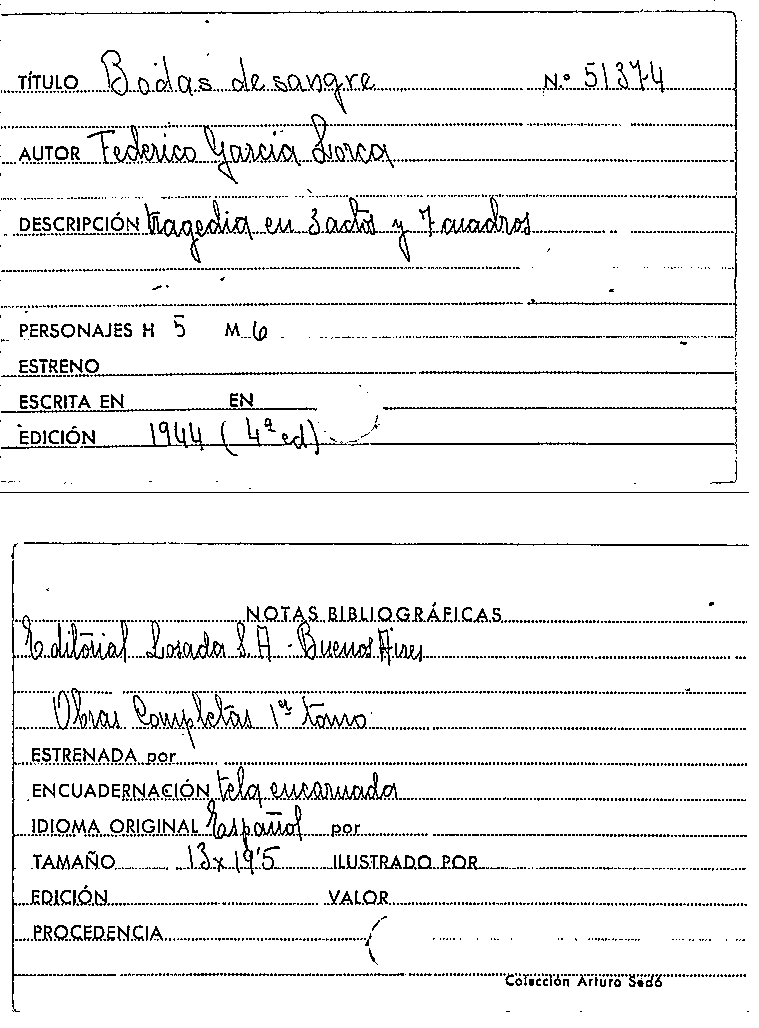 TÍTULO Bodas de sangre N.º 51374
AUTOR Federico García Lorca
DESCRIPCIÓN tragedia en 3 actos y 7 cuadros
PERSONAJES H 5 M 6
ESTRENO
ESCRITA EN EN
EDICIÓN 1944 (4ª ed)
NOTAS BIBLIOGRÁFICAS
Editorial Losada S.A - Buenos Aires
Obras Completas 1er tomo
ESTRENADA por
ENCUADERNACIÓN tela encarnada
IDIOMA ORIGINAL Español por
TAMAÑO 13x19'5 ILUSTRADO POR
EDICIÓN VALOR
PROCEDENCIA
Colección Arturo Sedó